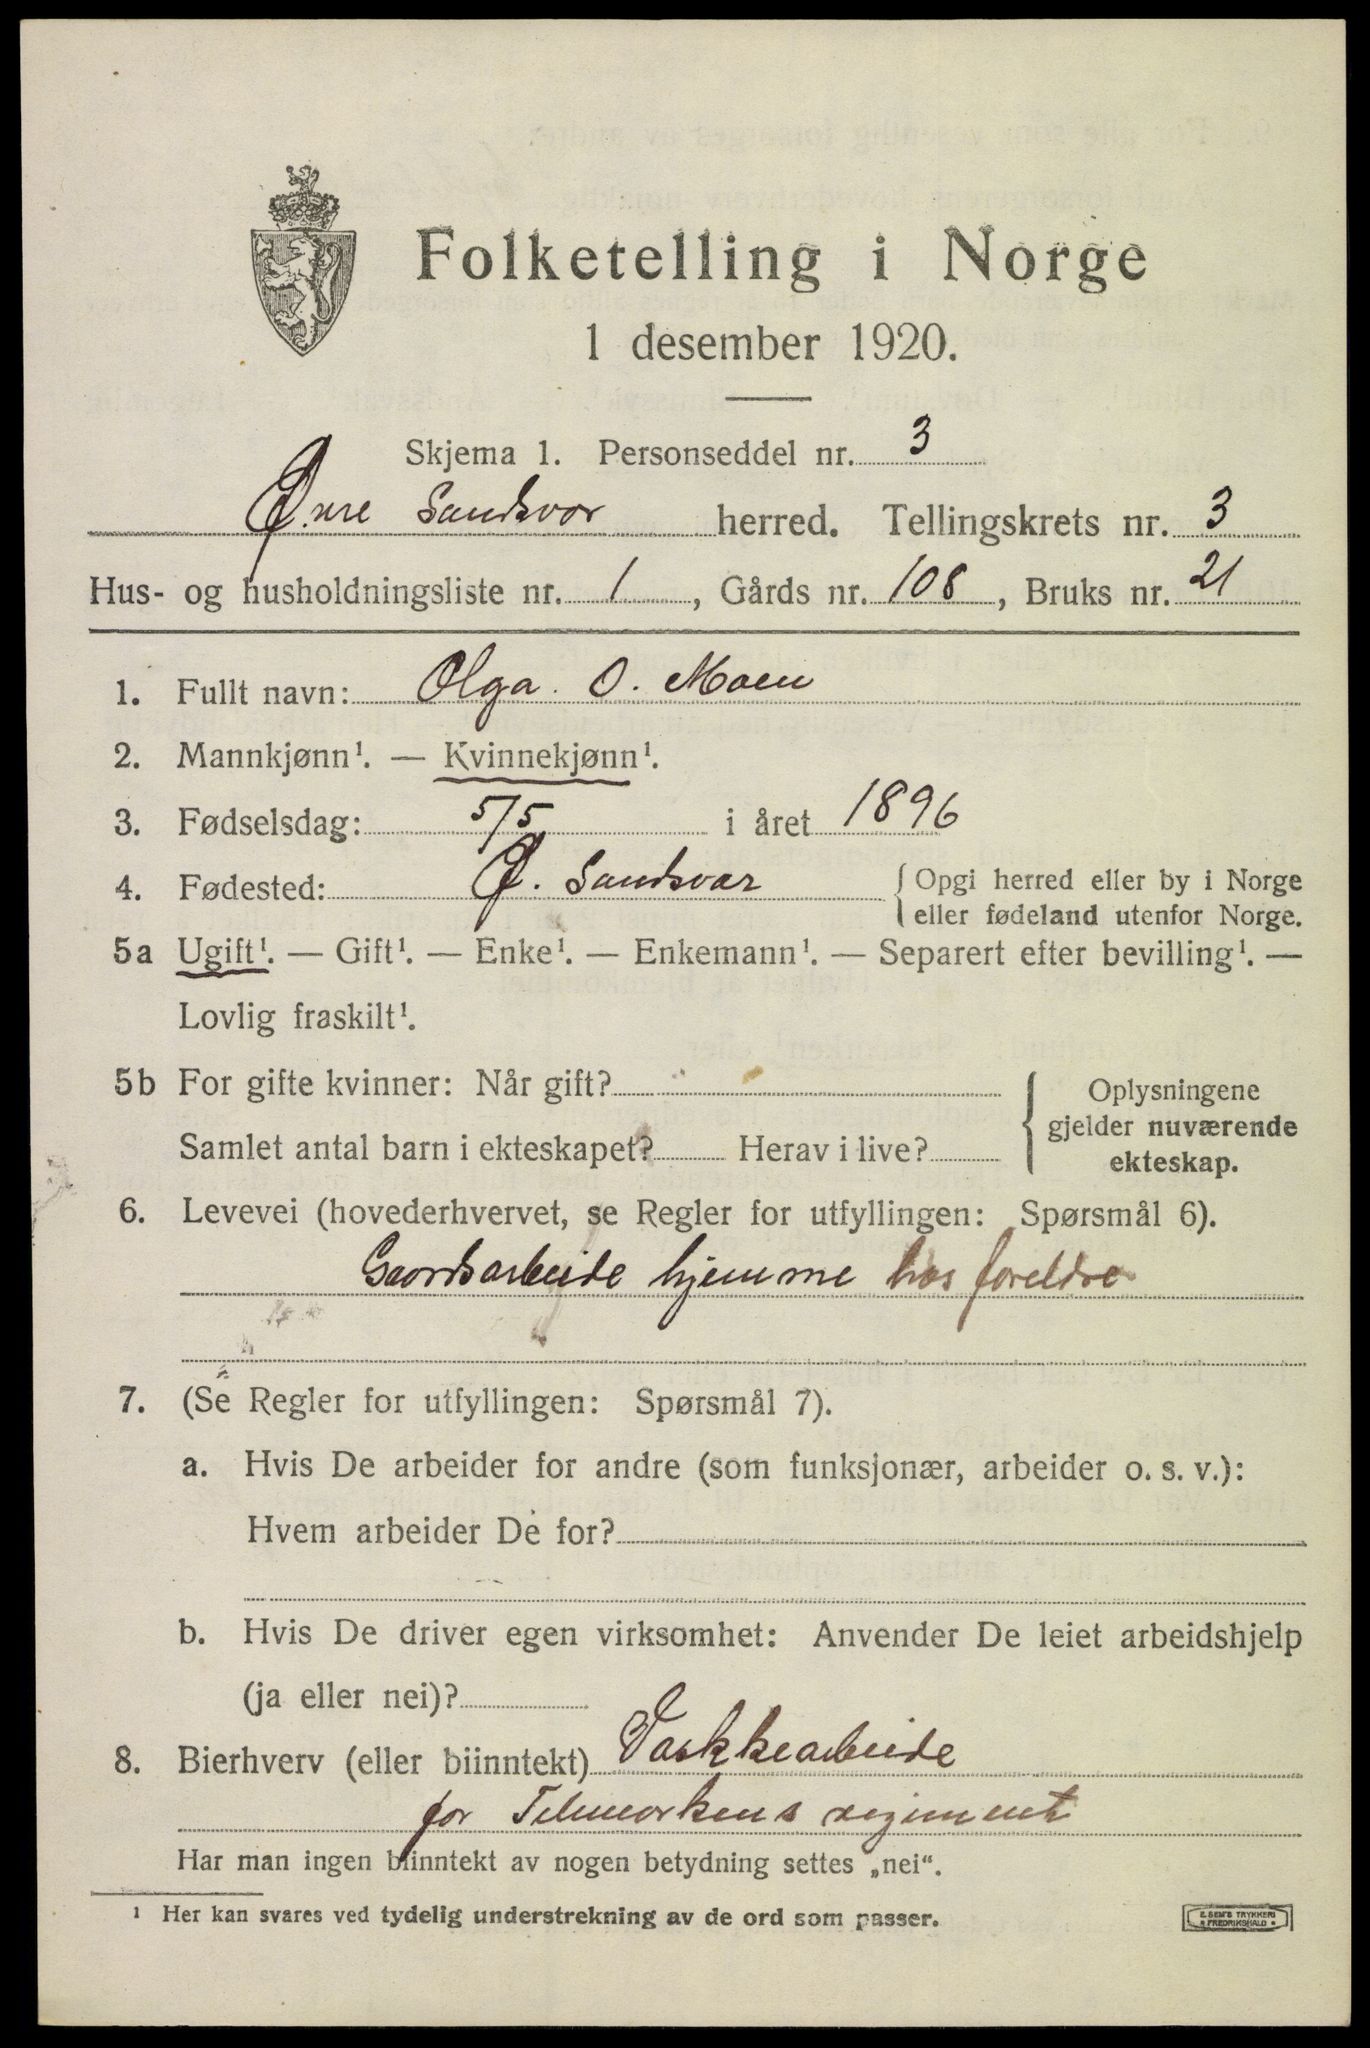 Folketelling i Norge
1 desember 1920.
Skjema 1. Personseddel nr. 3
Øvre Sandsvær herred. Tellingskrets nr. 3
Hus- og husholdningsliste nr. 1, Gårds nr. 108, Bruks nr. 21
1. Fullt navn: Olga. O. Moen
2. Mannkjønn¹. — Kvinnekjønn¹.
3. Fødselsdag: 5/5 i året 1896
4. Fødested: Ø. Sandsvær { Opgi herred eller by i Norge
eller fødeland utenfor Norge.
5a Ugift¹. — Gift¹. — Enke¹. — Enkemann¹. — Separert efter bevilling¹. —
Lovlig fraskilt¹.
5b For gifte kvinner: Når gift?
Samlet antal barn i ekteskapet? Herav i live?
{ Oplysningene
gjelder nuværende
ekteskap.
6. Levevei (hovederhvervet, se Regler for utfyllingen: Spørsmål 6).
Gaardsarbeide hjemme hos foreldre
7. (Se Regler for utfyllingen: Spørsmål 7).
a. Hvis De arbeider for andre (som funksjonær, arbeider o. s. v.):
Hvem arbeider De for?
b. Hvis De driver egen virksomhet: Anvender De leiet arbeidshjelp
(ja eller nei)?
8. Bierhverv (eller biinntekt) Vaskkearbeide
for Telemarkens regiment
Har man ingen biinntekt av nogen betydning settes „nei“.
¹ Her kan svares ved tydelig understrekning av de ord som passer.
E. SEM'S TRYKKERI
FREDRIKSHALD